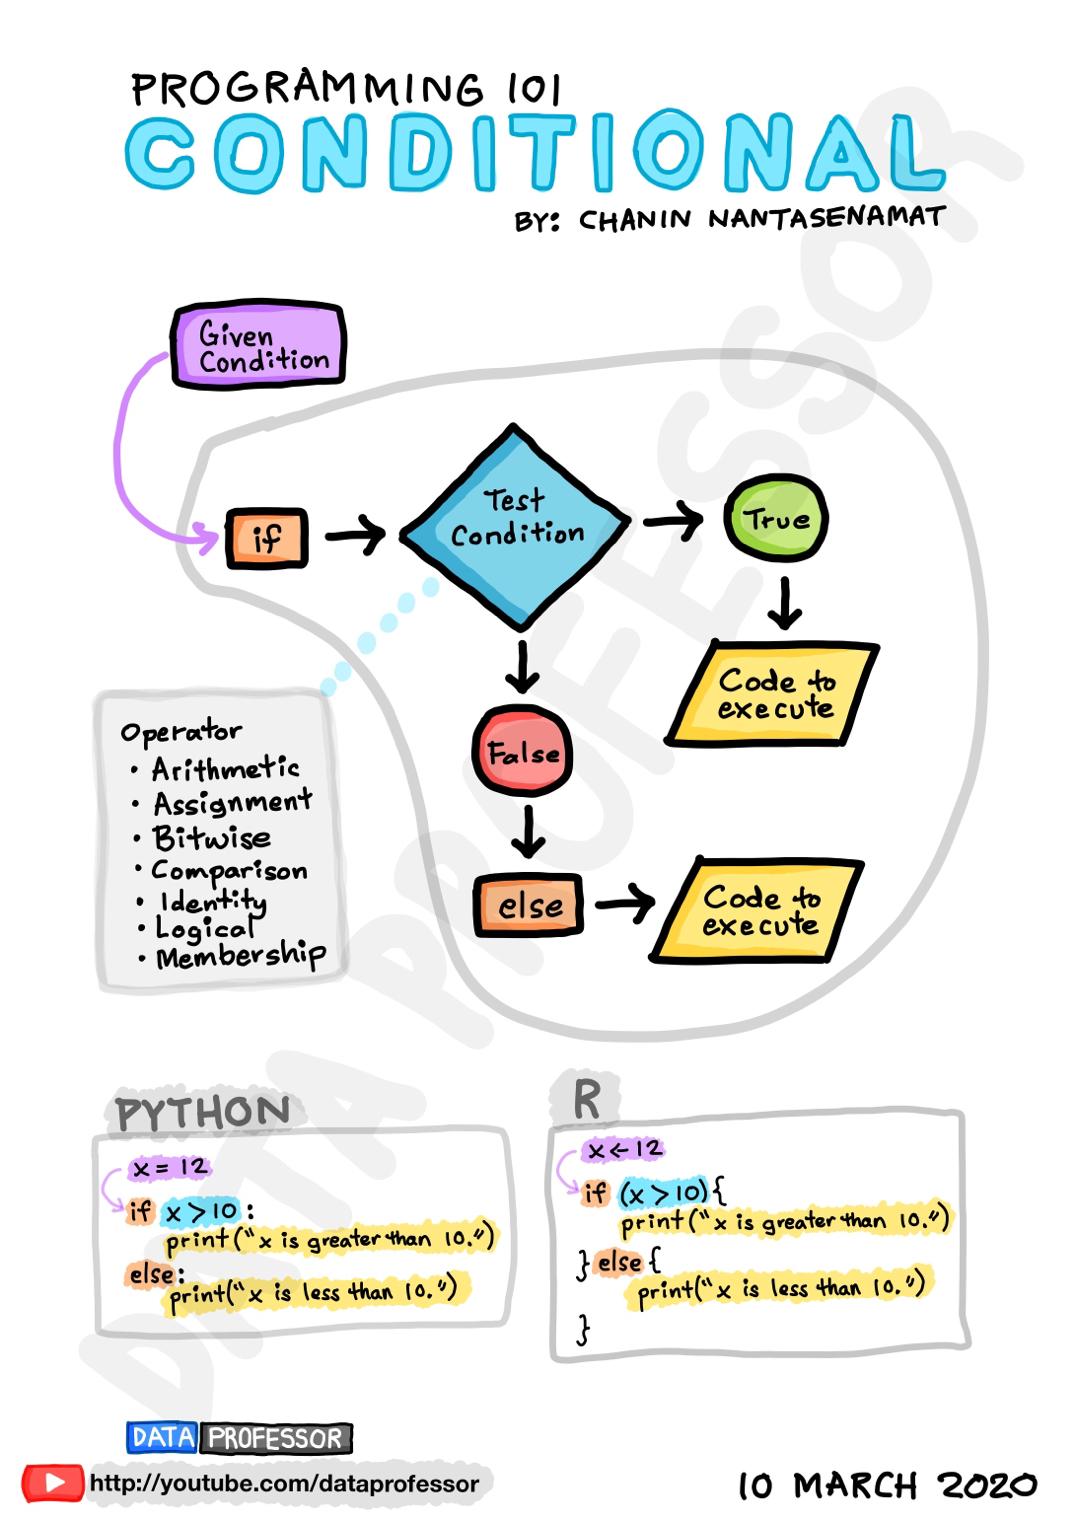 PROGRAMMING 101
CONDITIONAL
BY: CHANIN NANTASENAMAT
Given
Condition
if
Test
Condition
True
Code to
execute
False
else
Code to
execute
Operator
• Arithmetic
• Assignment
• Bitwise
• Comparison
• Identity
• Logical
• Membership
PYTHON
x = 12
if x > 10 :
print("x is greater than 10.")
else:
print("x is less than 10.")
R
x ← 12
if (x > 10) {
print("x is greater than 10.")
} else {
print("x is less than 10.")
}
DATA PROFESSOR
DATA PROFESSOR
http://youtube.com/dataprofessor
10 MARCH 2020